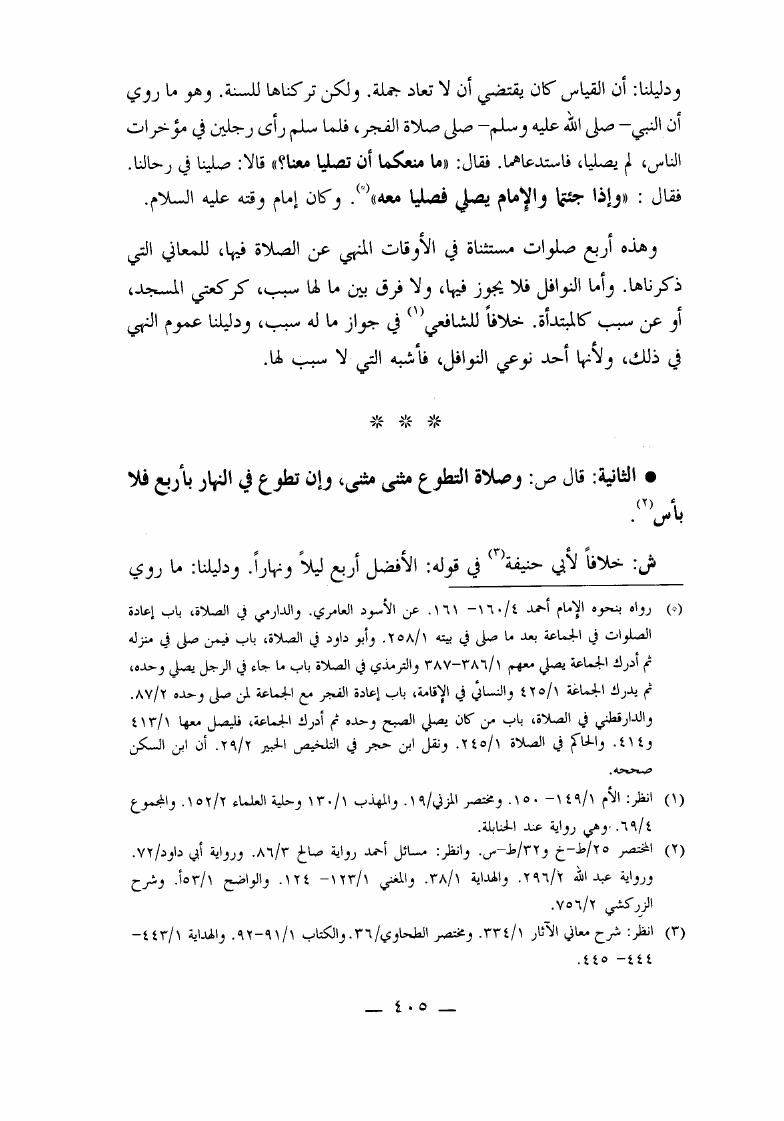 ودليلنا: أن القياس كان يقتضي أن لا تعاد جملة. ولكن تركناها للسنة. وهو ما روي
أن النبي– صلى الله عليه وسلم– صلى صلاة الفجر، فلما سلم رأى رجلين في مؤخرات
الناس، لم يصليا، فاستدعاهما. فقال: «ما منعكما أن تصليا معنا؟» قالا: صلينا في رحالنا.
فقال : «وإذا جئتما والإمام يصلي فصليا معه»(٥). وكان إمام وقته عليه السلام.
وهذه أربع صلوات مستثناة في الأوقات المنهي عن الصلاة فيها، للمعاني التي
ذكرناها. وأما النوافل فلا يجوز فيها، ولا فرق بين ما لها سبب، كركعتي المسجد،
أو عن سبب كالمبتدأة. خلافاً للشافعي(١) في جواز ما له سبب، ودليلنا عموم النهي
في ذلك، ولأنها أحد نوعي النوافل، فأشبه التي لا سبب لها.
* * *
● الثانية: قال ص: وصلاة التطوع مثنى مثنى، وإن تطوع في النهار بأربع فلا
بأس(٢).
ش: خلافاً لأبي حنيفة(٣) في قوله: الأفضل أربع ليلاً ونهاراً. ودليلنا: ما روي
(٥) رواه بنحوه الإمام أحمد ٤/١٦٠– ١٦١. عن الأسود العامري. والدارمي في الصلاة، باب إعادة
الصلوات في الجماعة بعد ما صلى في بيته ٢٥٨/١. وأبو داود في الصلاة، باب فيمن صلى في منزله
ثم أدرك الجماعة يصلي معهم ٣٨٦/١–٣٨٧ والترمذي في الصلاة باب ما جاء في الرجل يصلي وحده،
ثم يدرك الجماعة ٤٢٥/١ والنسائي في الإقامة، باب إعادة الفجر مع الجماعة لمن صلى وحده ٨٧/٢.
والدارقطني في الصلاة، باب من كان يصلي الصبح وحده ثم أدرك الجماعة، فليصل معها ٤١٣/١
و٤١٤. والحاكم في الصلاة ٢٤٥/١. ونقل ابن حجر في التلخيص الحبير ٢٩/٢. أن ابن السكن
صححه.
(١) انظر: الأم ١٤٩/١– ١٥٠. ومختصر المزني/١٩. والمهذب ١٣٠/١ وحلية العلماء ١٥٢/٢. والمجموع
٦٩/٤. وهي رواية عند الحنابلة.
(٢) المختصر ٢٥/ط–خ و٣٢/ط–س. وانظر: مسائل أحمد رواية صالح ٨٦/٣. ورواية أبي داود/٧٢.
ورواية عبد الله ٢٩٦/٢. والهداية ٣٨/١. والمغني ١٢٣/١– ١٢٤. والواضح ٥٣/١أ. وشرح
الزركشي ٧٥٦/٢.
(٣) انظر: شرح معاني الآثار ٣٣٤/١. ومختصر الطحاوي/٣٦. والكتاب ٩١/١–٩٢. والهداية ٤٤٣/١–
٤٤٤– ٤٤٥.
— ٤٠٥ —